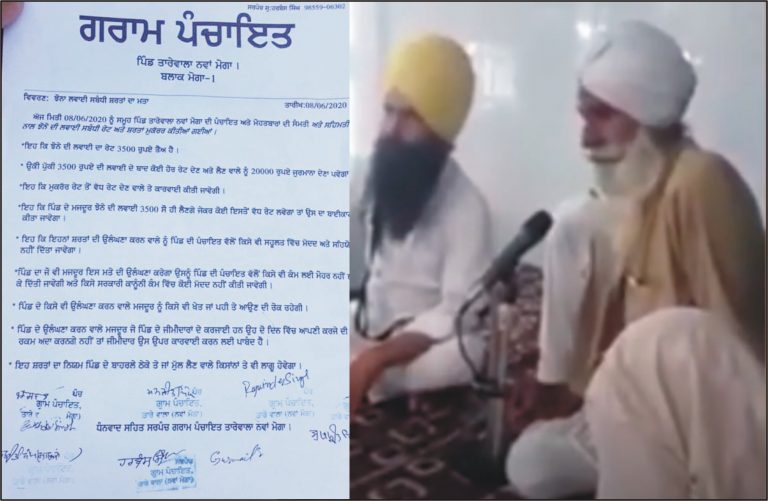 ਸਰਪੰਚ ਸ੍ਰ:ਹਰਬੰਸ ਸਿੰਘ 98559-06302
ਗਰਾਮ ਪੰਚਾਇਤ
ਪਿੰਡ ਤਾਰੇਵਾਲਾ ਨਵਾਂ ਮੋਗਾ ।
ਬਲਾਕ ਮੋਗਾ-1
ਵਿਵਰਣ: ਝੋਨਾ ਲਵਾਈ ਸਬੰਧੀ ਸ਼ਰਤਾਂ ਦਾ ਮਤਾ ਤਾਰੀਖ:08/06/2020
ਅੱਜ ਮਿਤੀ 08/06/2020 ਨੂੰ ਸਮੂਹ ਪਿੰਡ ਤਾਰੇਵਾਲਾ ਨਵਾਂ ਮੋਗਾ ਦੀ ਪੰਚਾਇਤ ਅਤੇ ਮੋਹਤਬਾਰਾਂ ਦੀ ਸੰਮਤੀ ਅਤੇ ਸਹਿਮਤੀ
ਨਾਲ ਝੋਨੇ ਦੀ ਲਵਾਈ ਸਬੰਧੀ ਰੇਟ ਅਤੇ ਸ਼ਰਤਾਂ ਮੁਕੱਰਰ ਕੀਤੀਆਂ ਗਈਆਂ ।
*ਇਹ ਕਿ ਝੋਨੇ ਦੀ ਲਵਾਈ ਦਾ ਰੇਟ 3500 ਰੁਪਏ ਤੈਅ ਹੈ ।
* ਉੱਕੀ ਪੁੱਕੀ 3500 ਰੁਪਏ ਦੀ ਲਵਾਈ ਦੇ ਬਾਦ ਕੋਈ ਹੋਰ ਰੇਟ ਦੇਣ ਅਤੇ ਲੈਣ ਵਾਲੇ ਨੂੰ 20000 ਰੁਪਏ ਜੁਰਮਾਨਾ ਦੇਣਾ ਪਵੇਗਾ
*ਇਹ ਕਿ ਮੁਕੱਰਰ ਰੇਟ ਤੋਂ ਵੱਧ ਰੇਟ ਦੇਣ ਵਾਲੇ ਤੇ ਕਾਰਵਾਈ ਕੀਤੀ ਜਾਵੇਗੀ ।
*ਇਹ ਕਿ ਪਿੰਡ ਦੇ ਮਜਦੂਰ ਝੋਨੇ ਦੀ ਲਵਾਈ 3500 ਸੌ ਹੀ ਲੈਣਗੇ ਜੇਕਰ ਕੋਈ ਇਸਤੋਂ ਵੱਧ ਰੇਟ ਲਵੇਗਾ ਤਾਂ ਉਸ ਦਾ ਬਾਈਕਾਟ
ਕੀਤਾ ਜਾਵੇਗਾ ।
*ਇਹ ਕਿ ਇਹਨਾਂ ਸ਼ਰਤਾਂ ਦੀ ਉਲੰਘਣਾ ਕਰਨ ਵਾਲੇ ਨੂੰ ਪਿੰਡ ਦੀ ਪੰਚਾਇਤ ਵੱਲੋਂ ਕਿਸੇ ਵੀ ਸਹੂਲਤ ਵਿੱਚ ਮੱਦਦ ਅਤੇ
ਨਹੀਂ ਦਿੱਤਾ ਜਾਵੇਗਾ ।
*ਪਿੰਡ ਦਾ ਜੋ ਵੀ ਮਜਦੂਰ ਇਸ ਮਤੇ ਦੀ ਉਲੰਘਣਾ ਕਰੇਗਾ ਉਸਨੂੰ ਪਿੰਡ ਦੀ ਪੰਚਾਇਤ ਵੱਲੋਂ ਕਿਸੇ ਵੀ ਕੰਮ ਲਈ ਮੋਹਰ ਨਹੀਂ
ਕੇ ਦਿੱਤੀ ਜਾਵੇਗੀ ਅਤੇ ਕਿਸੇ ਸਰਕਾਰੀ ਕਾਨੂੰਨੀ ਕੰਮ ਵਿੱਚ ਕੋਈ ਮੱਦਦ ਨਹੀਂ ਕੀਤੀ ਜਾਵੇਗੀ ।
* ਪਿੰਡ ਦੇ ਕਿਸੇ ਵੀ ਉਲੰਘਣਾ ਕਰਨ ਵਾਲੇ ਮਜਦੂਰ ਨੂੰ ਕਿਸੇ ਵੀ ਖੇਤ ਜਾਂ ਪਹੀ ਤੇ ਆਉਣ ਦੀ ਰੋਕ ਰਹੇਗੀ ।
* ਪਿੰਡ ਦੇ ਉਲੰਘਣਾ ਕਰਨ ਵਾਲੇ ਮਜਦੂਰ ਜੋ ਪਿੰਡ ਦੇ ਜੀਮੀਂਦਾਰਾਂ ਦੇ ਕਰਜਾਈ ਹਨ ਉਹ ਦੋ ਦਿਨ ਵਿੱਚ ਆਪਣੀ ਕਰਜੇ ਦੀ
ਰਕਮ ਅਦਾ ਕਰਨਗੇ ਨਹੀਂ ਤਾਂ ਜੀਮੀਂਦਾਰ ਉਸ ਉਪਰ ਕਾਰਵਾਈ ਕਰਨ ਲਈ ਪਾਬੰਦ ਹੈ ।
* ਇਹ ਸ਼ਰਤਾਂ ਦਾ ਨਿਯਮ ਪਿੰਡ ਦੇ ਬਾਹਰਲੇ ਠੇਕੇ ਤੇ ਜਾਂ ਮੁੱਲ ਲੈਣ ਵਾਲੇ ਕਿਸਾਨਾਂ ਤੇ ਵੀ ਲਾਗੂ ਹੋਵੇਗਾ ।
ਪੰਚ ਪੰਚ
ਗ੍ਰਾਮ ਪੰਚਾਇਤ, ਗ੍ਰਾਮ ਪੰਚਾਇਤ,
ਤਾਰੇ ਵਾਲਾ (ਨਵਾਂ ਮੋਗਾ)
ਧੰਨਵਾਦ ਸਹਿਤ ਸਰਪੰਚ ਗਰਾਮ ਪੰਚਾਇਤ ਤਾਰੇਵਾਲਾ ਨਵਾਂ ਮੋਗਾ ।
ਸਰਪੰਚ
ਗ੍ਰਾਮ ਪੰਚਾਇਤ,
ਤਾਰੇ ਵਾਲਾ (ਨਵਾਂ ਮੋਗਾ)